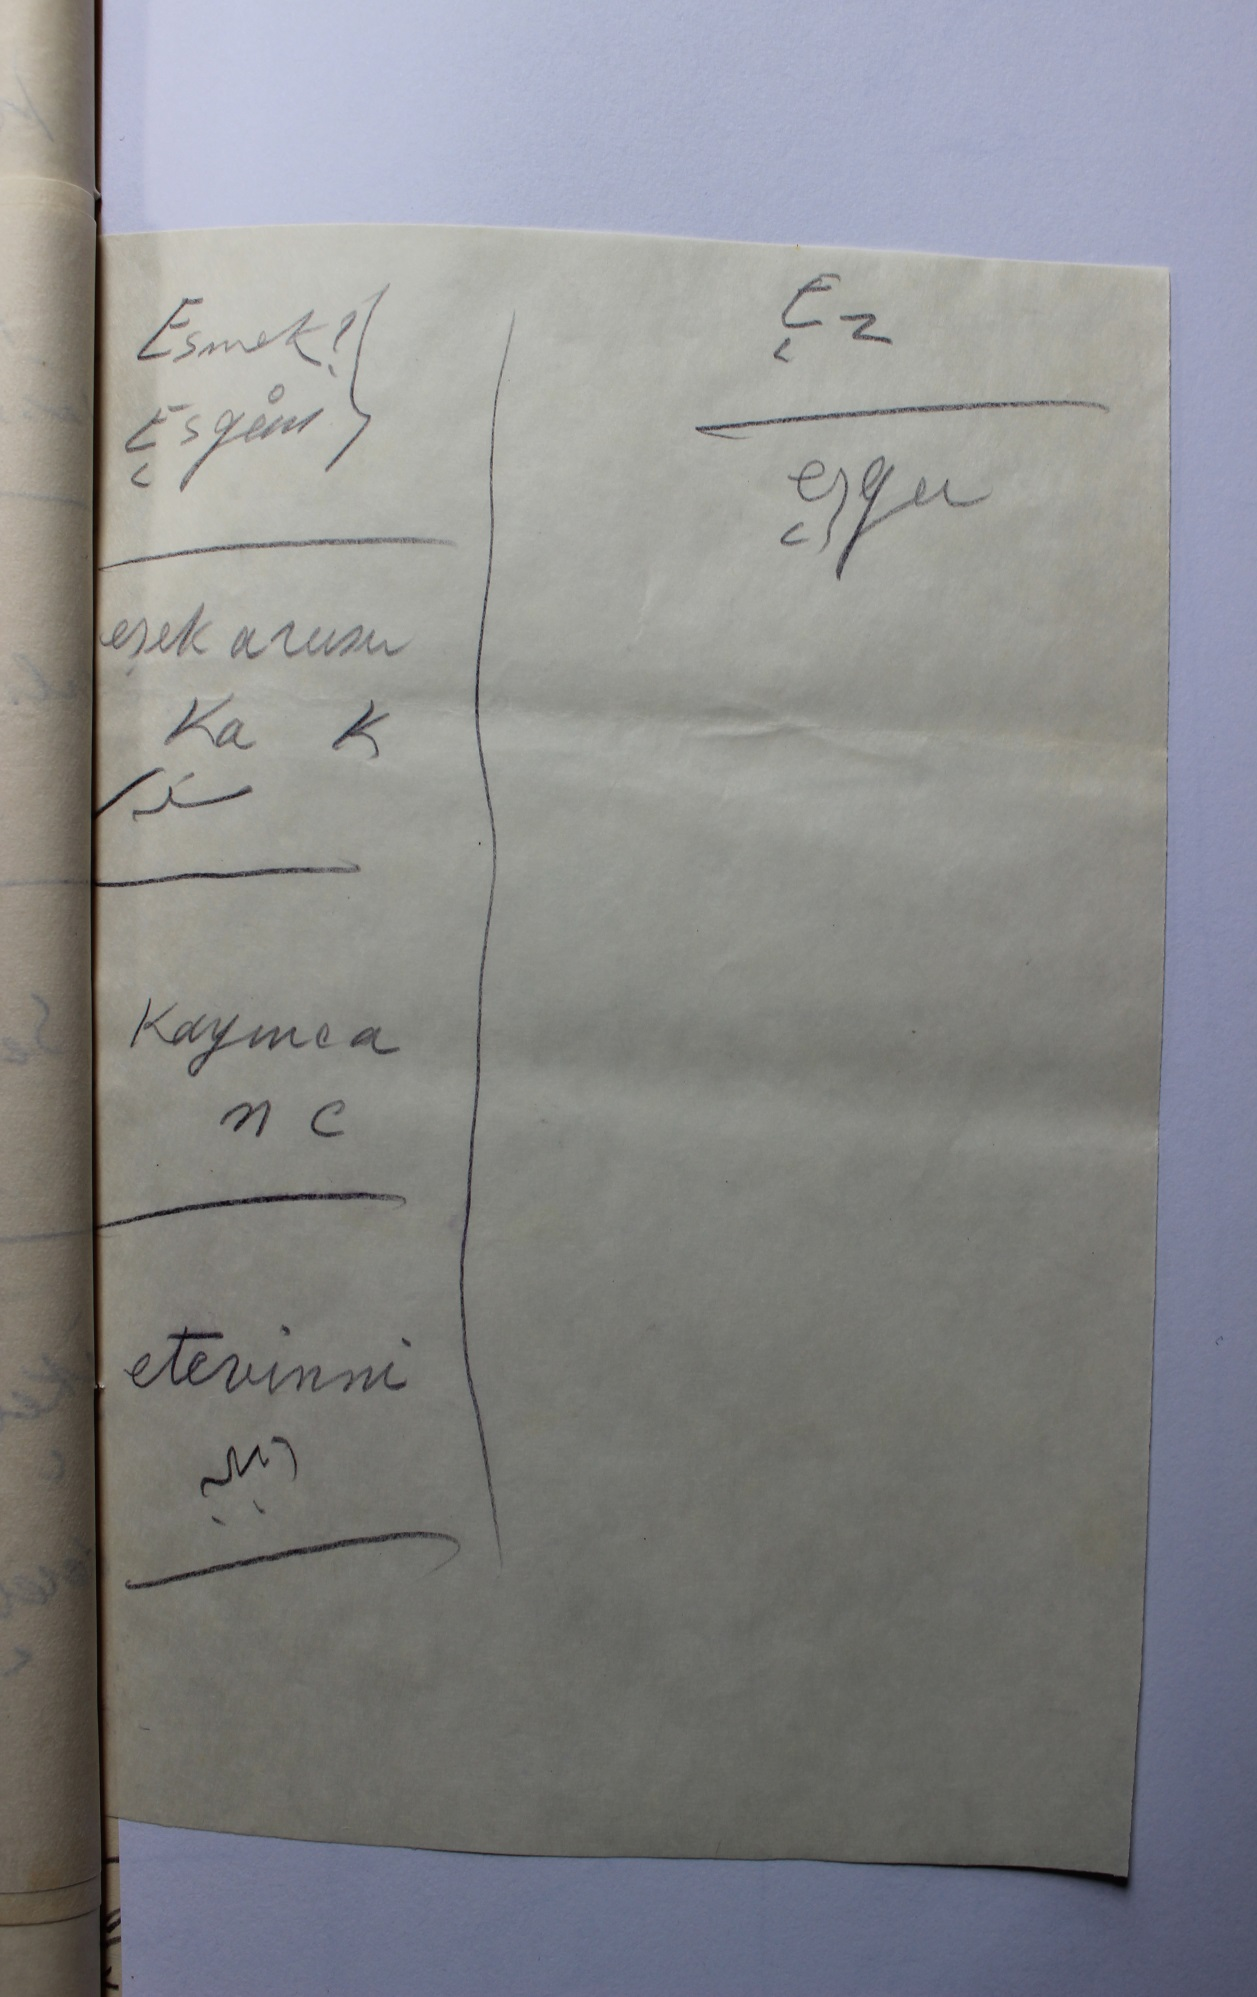 Esmek?
Esgân
eşek arusu
Ka k
Kaymca
n c
etevinni
Ez
eşgu